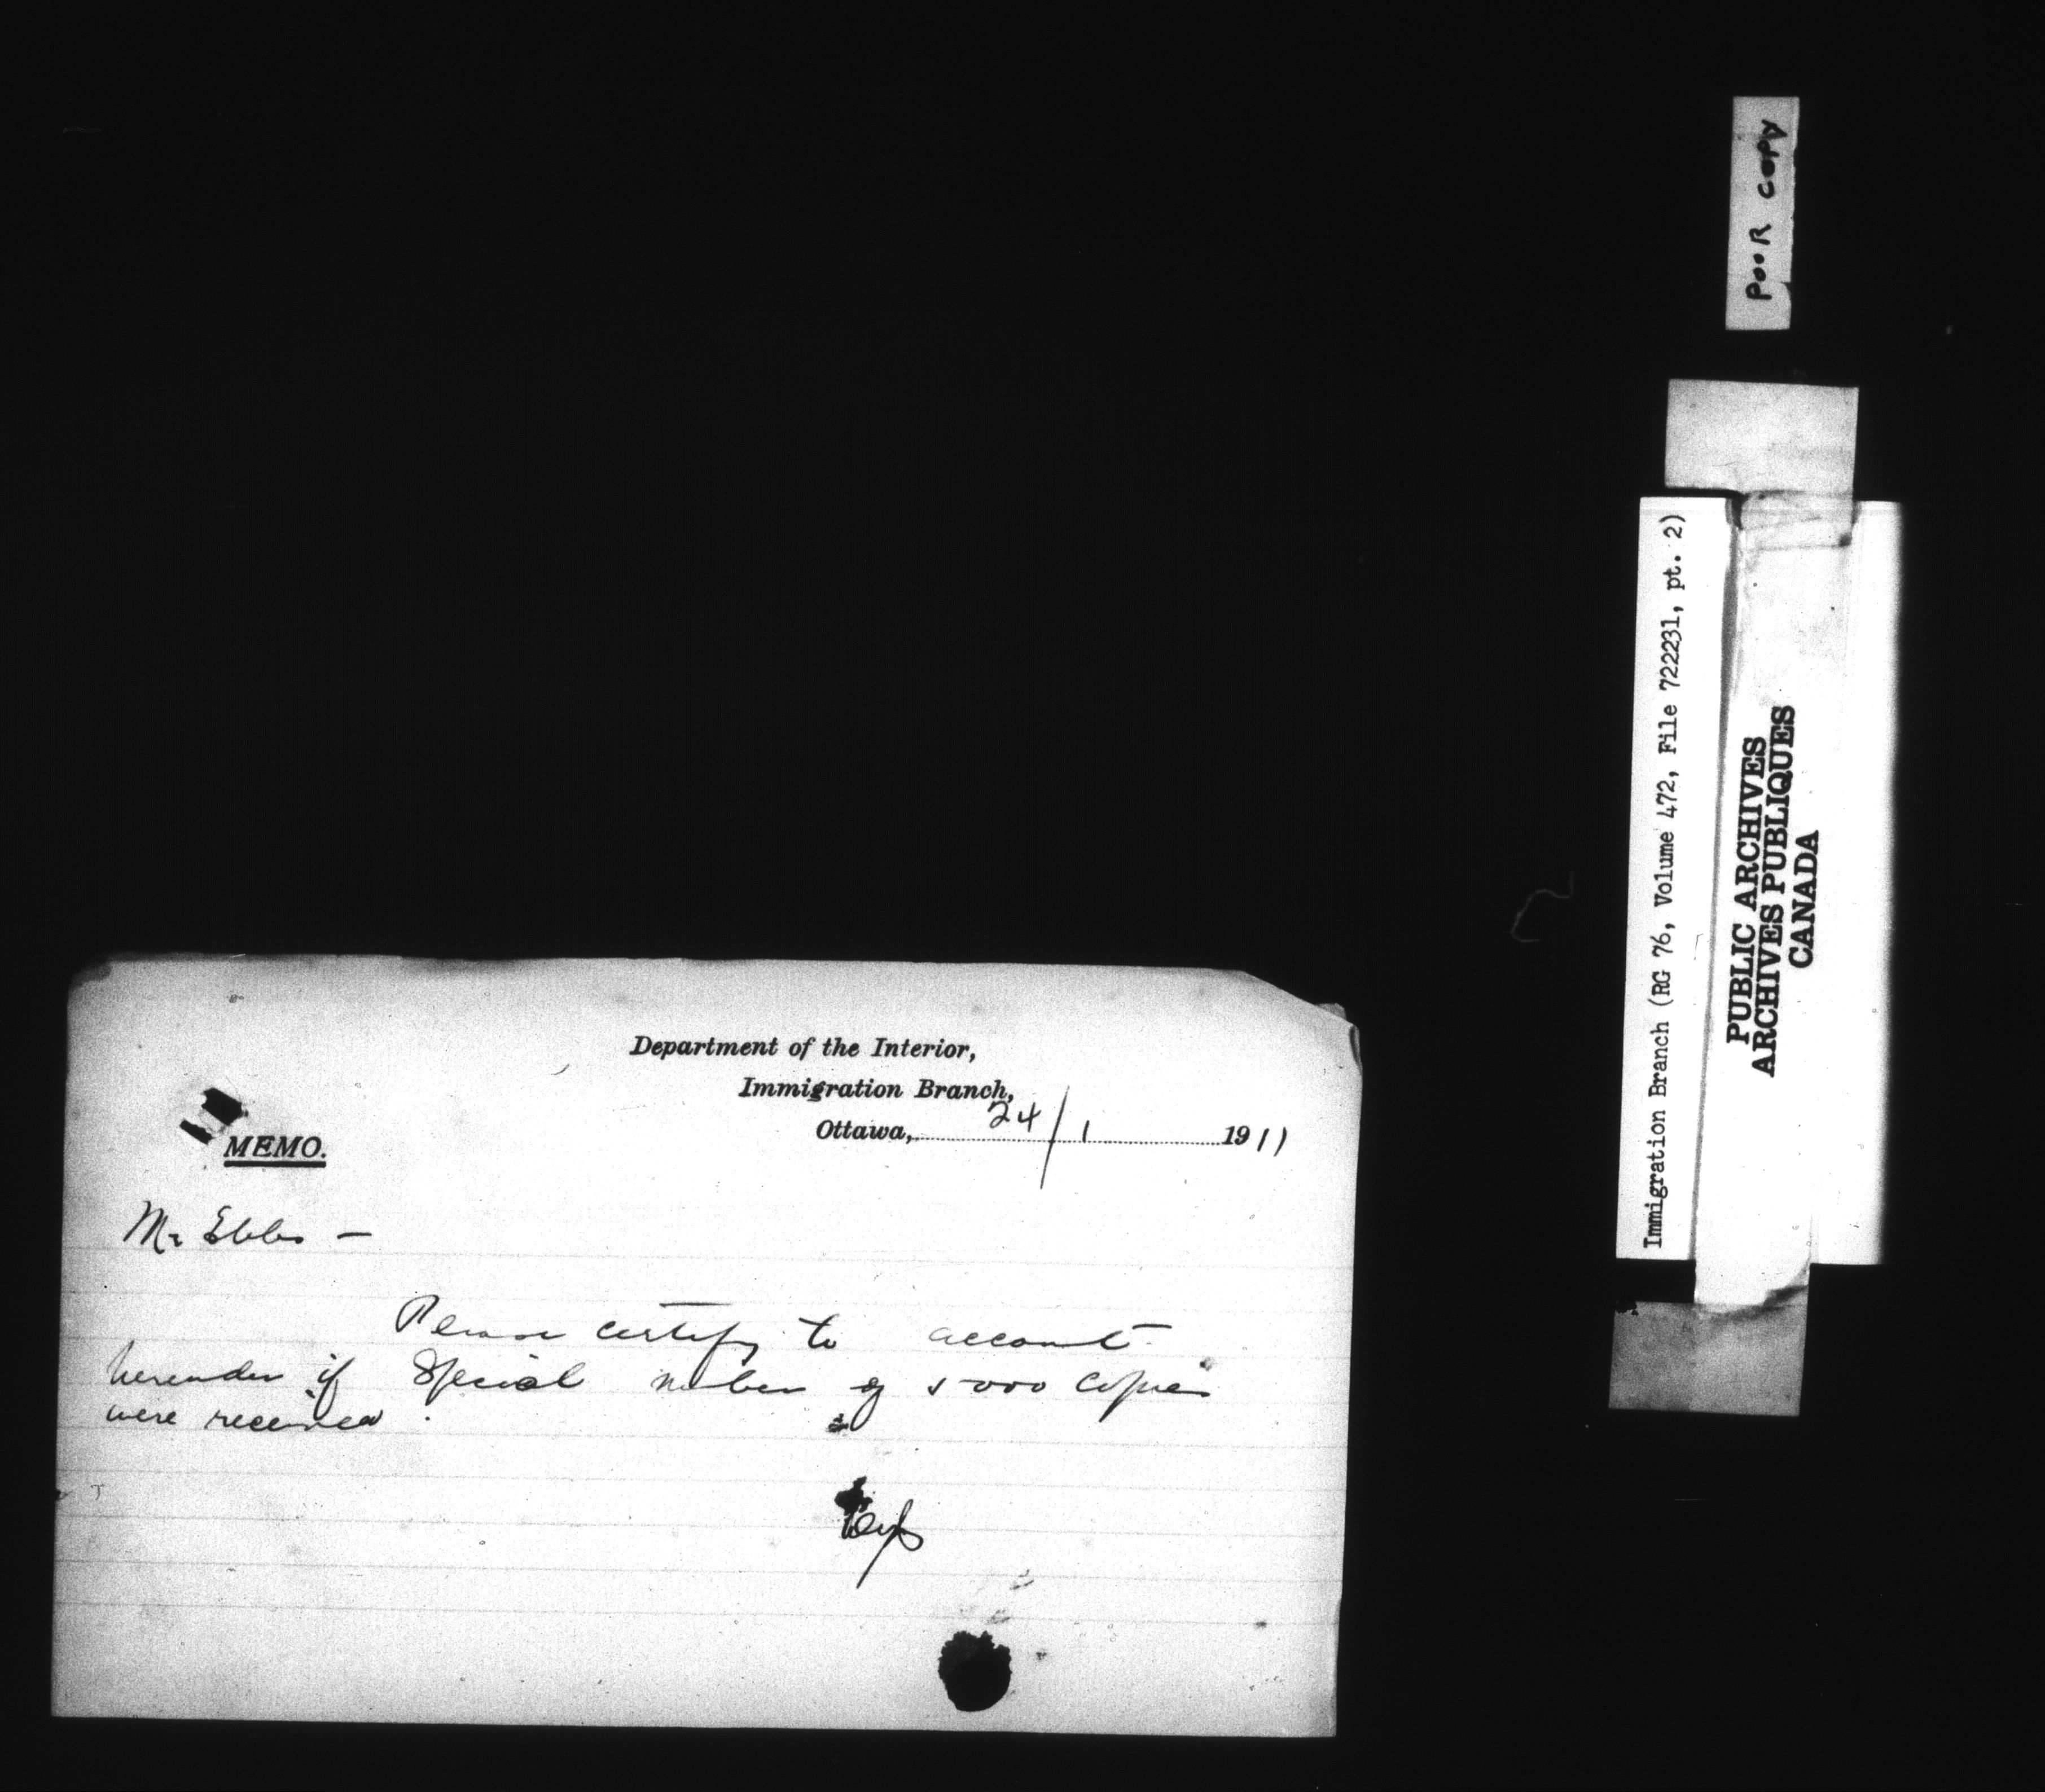 Department of the Interior,
Immigration Branch,
Ottawa, 24/1 1911
MEMO.
Mr Ebbs —
Please certify to account
hereunder if Special number of 5000 copies
were received.
POOR COPY
Immigration Branch (RG 76, Volume 472, File 722231, pt. 2)
PUBLIC ARCHIVES
ARCHIVES PUBLIQUES
CANADA